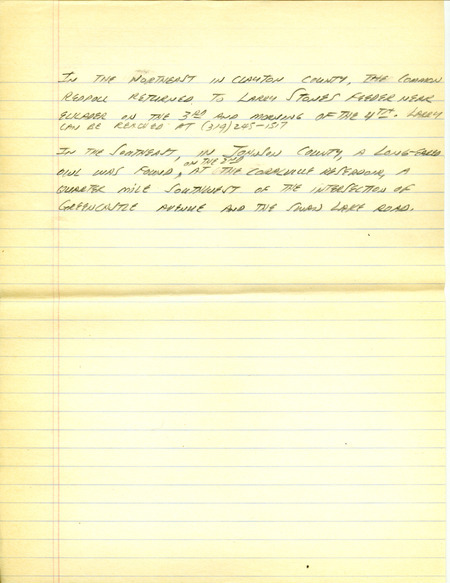 IN THE NORTHEAST IN CLAYTON COUNTY, THE COMMON
REDPOLL RETURNED TO LARRY STONES FEEDER NEAR
ELKADER ON THE 3RD AND MORNING OF THE 4TH. LARRY
CAN BE REACHED AT (319) 245-1517
IN THE SOUTHEAST, IN JOHNSON COUNTY, A LONG-EARED
ON THE 3RD
OWL WAS FOUND, AT THE CORALVILLE RESERVOIR, A
QUARTER MILE SOUTHWEST OF THE INTERSECTION OF
GREENCASTLE AVENUE AND THE SWAN LAKE ROAD.